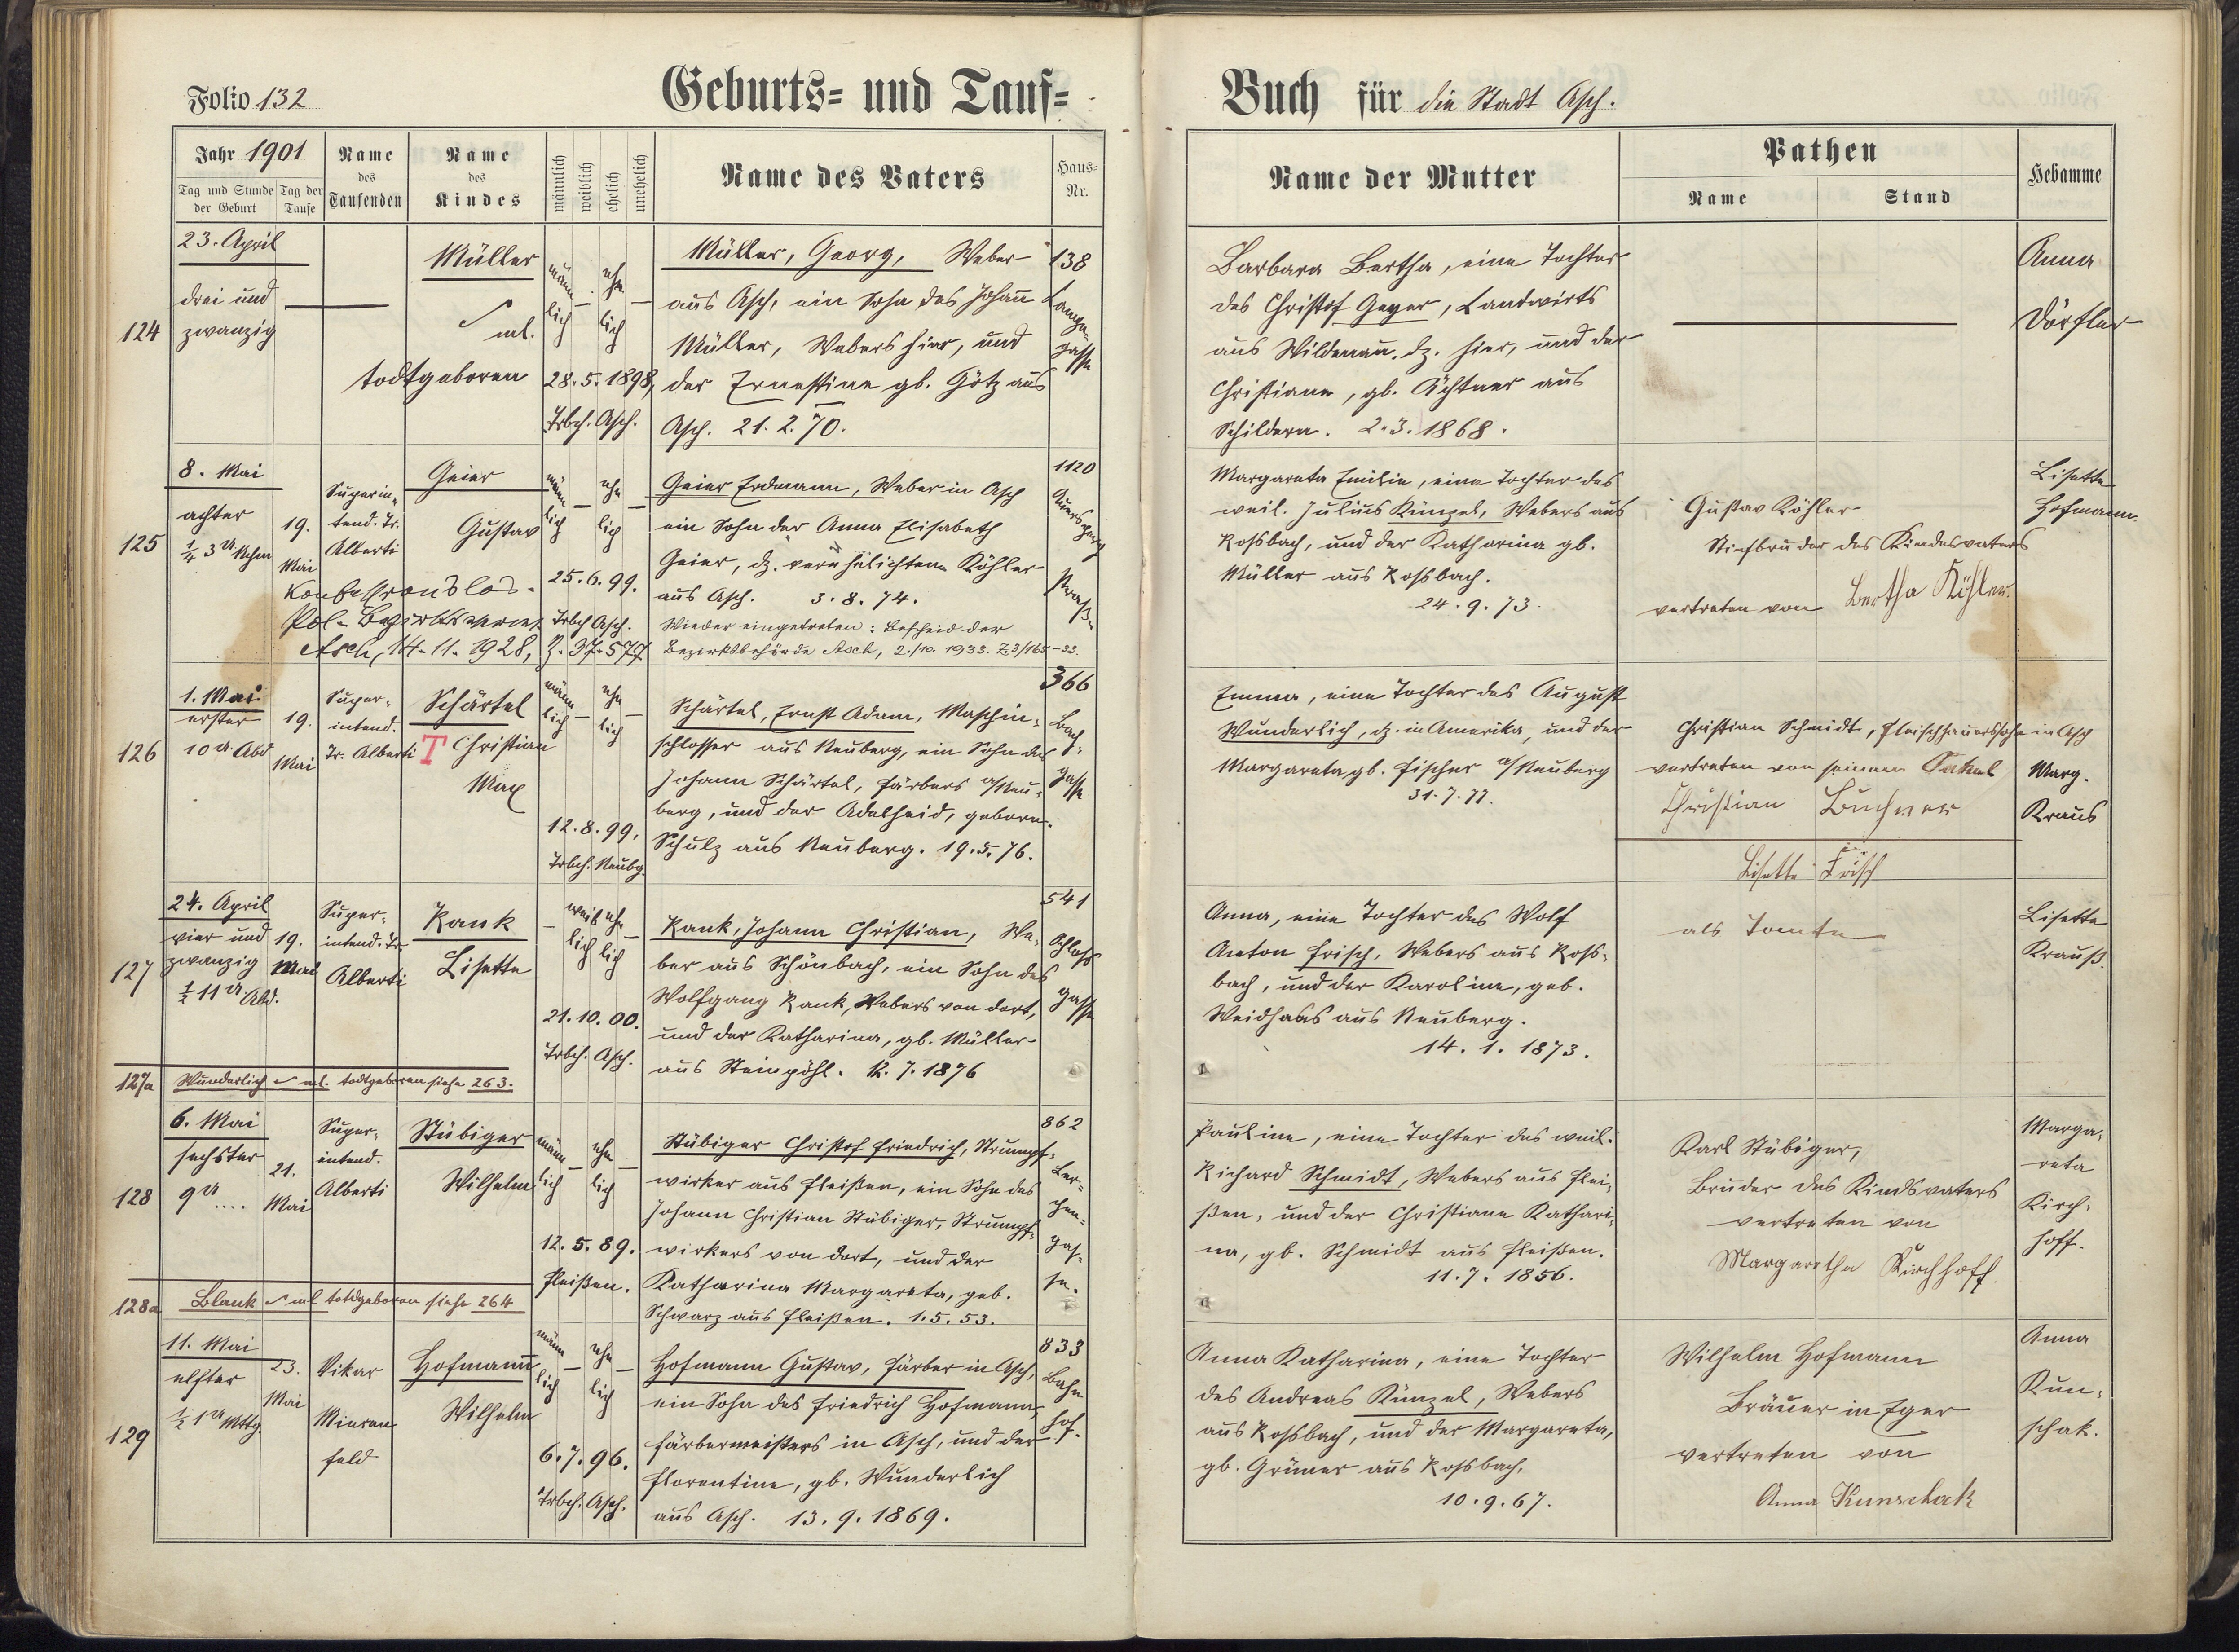 Folio 132
Geburts- und Tauf-
Buch für die Stadt Asch.
Jahr 1901
Tag und Stunde der Geburt
Tag der Taufe
Name des Taufenden
Name des Kindes
männlich
weiblich
ehelich
unehelich
Name des Vaters
Haus-Nr.
Name der Mutter
Pathen
Name
Stand
Hebamme
124
23. April
drei und
zwanzig
Müller
ml.
todtgeboren
männ-
lich
ehe
lich
28.5.1898,
Trbch. Asch.
Müller, Georg, Weber
aus Asch, ein Sohn des Johann
Müller, Webers hier, und
der Ernestine gb. Götz aus
Asch. 21.2.70.
138
Lange-
gasse
Barbara Bertha, eine Tochter
des Christof Geyer, Landwirts
aus Wildenau, dz. hier, und der
Christiane, gb. Künzel aus
Schildern. 2.3.1868.
Anna
Dörfler
125
8. Mai
achter
¼ 3 U Nchm
19.
Mai
Superin-
tend. Dr.
Alberti
Geier
Gustav
männ
lich
ehe
lich
25.6.99.
Trbch Asch.
Konfessionslos.
Pol. Bezirks
Asch, 14.11.1928, Z. 37.577
Geier Erdmann, Weber in Asch
ein Sohn der Anna Elisabeth
Geier, dz. verehelichten Köhler
aus Asch. 3.8.74.
Wieder eingetreten: Bescheid der
Bezirksbehörde Asch, 2./10. 1933. Z 3/165-33.
1120
Auersperg
straße
Margareta Emilie, eine Tochter des
weil. Julius Künzel, Webers aus
Rossbach, und der Katharina gb.
Müller aus Rossbach.
24.9.73.
Gustav Köhler
Stiefbruder des Kindesvaters
vertreten von Bertha Köhler.
Lisette
Hofmann.
126
1. Mai
erster
10 U. Abd
19.
Mai
Super-
intend.
Dr. Alberti
Schärtel
T Christian
Max
männ
lich
ehe
lich
12.8.99.
Trbch. Neubg.
Schärtel, Ernst Adam, Maschin-
schlosser aus Neuberg, ein Sohn des
Johann Schärtel, Färbers a/Neu-
berg, und der Adelheid, geborne
Schulz aus Neuberg. 19.5.76.
366
Bach-
gasse
Emma, eine Tochter des August
Wunderlich, dz. in Amerika, und der
Margareta, gb. Fischer a/Neuberg
31.7.77.
Christian Schmidt, Fleischhauerssohn in Asch
vertreten von seinem Onkel
Christian Buchner
Marg.
Kraus
127
24. April
vier und
zwanzig
½ 11 U. Abd.
19.
Mai
Super-
intend. Dr
Alberti
Rank
Lisette
weib
lich
ehe
lich
21.10.00.
Trbch. Asch.
Rank, Johann Christian, We-
ber aus Schönbach, ein Sohn des
Wolfgang Rank, Webers von dort,
und der Katharina, gb. Müller
aus Steinpöhl. 12.7.1876
541
Schloss
gasse
Anna, eine Tochter des Wolf
Anton Frisch, Webers aus Ross-
bach, und der Karoline, geb.
Weidhaas aus Neuberg.
14.1.1873.
Lisette Frisch
als Tante
Lisette
Krauß.
127a
Wunderlich ml. todtgeboren siehe 263.
128
6. Mai
sechster
9 U ....
21.
Mai
Super-
intend.
Alberti
Stübiger
Wilhelm
männ
lich
ehe
lich
12.5.89.
Fleißen.
Stübiger Christof Friedrich, Strumpf-
wirker aus Fleißen, ein Sohn des
Johann Christian Stübiger, Strumpf-
wirkers von dort, und der
Katharina Margareta, geb.
Schwarz aus Fleißen. 1.5.53.
862
Ler-
chen-
gas-
se.
Pauline, eine Tochter des weil.
Richard Schmidt, Webers aus Flei-
ßen, und der Christiane Kathari-
na, gb. Schmidt aus Fleißen.
11.7.1856.
Karl Stübiger,
Bruder des Kindsvaters
vertreten von
Margaretha Kirchhoff.
Marga-
reta
Kirch-
hoff.
128a
Blank ml todgeboren siehe 264
129
11. Mai
elfter
½ 1 U Mttg.
23.
Mai
Vikar
Mieren
feld
Hofmann
Wilhelm
männ
lich
ehe
lich
6.7.96.
Trbch. Asch.
Hofmann Gustav, Färber in Asch,
ein Sohn des Friedrich Hofmann,
Färbermeisters in Asch, und der
Florentine, gb. Wunderlich
aus Asch. 13.9.1869.
833
Bahn
hof.
Anna Katharina, eine Tochter
des Andreas Künzel, Webers
aus Rossbach, und der Margareta,
gb. Grüner aus Rossbach,
10.9.67.
Wilhelm Hofmann
Bräuer in Eger
vertreten von
Anna Kunschak
Anna
Kun-
schak.